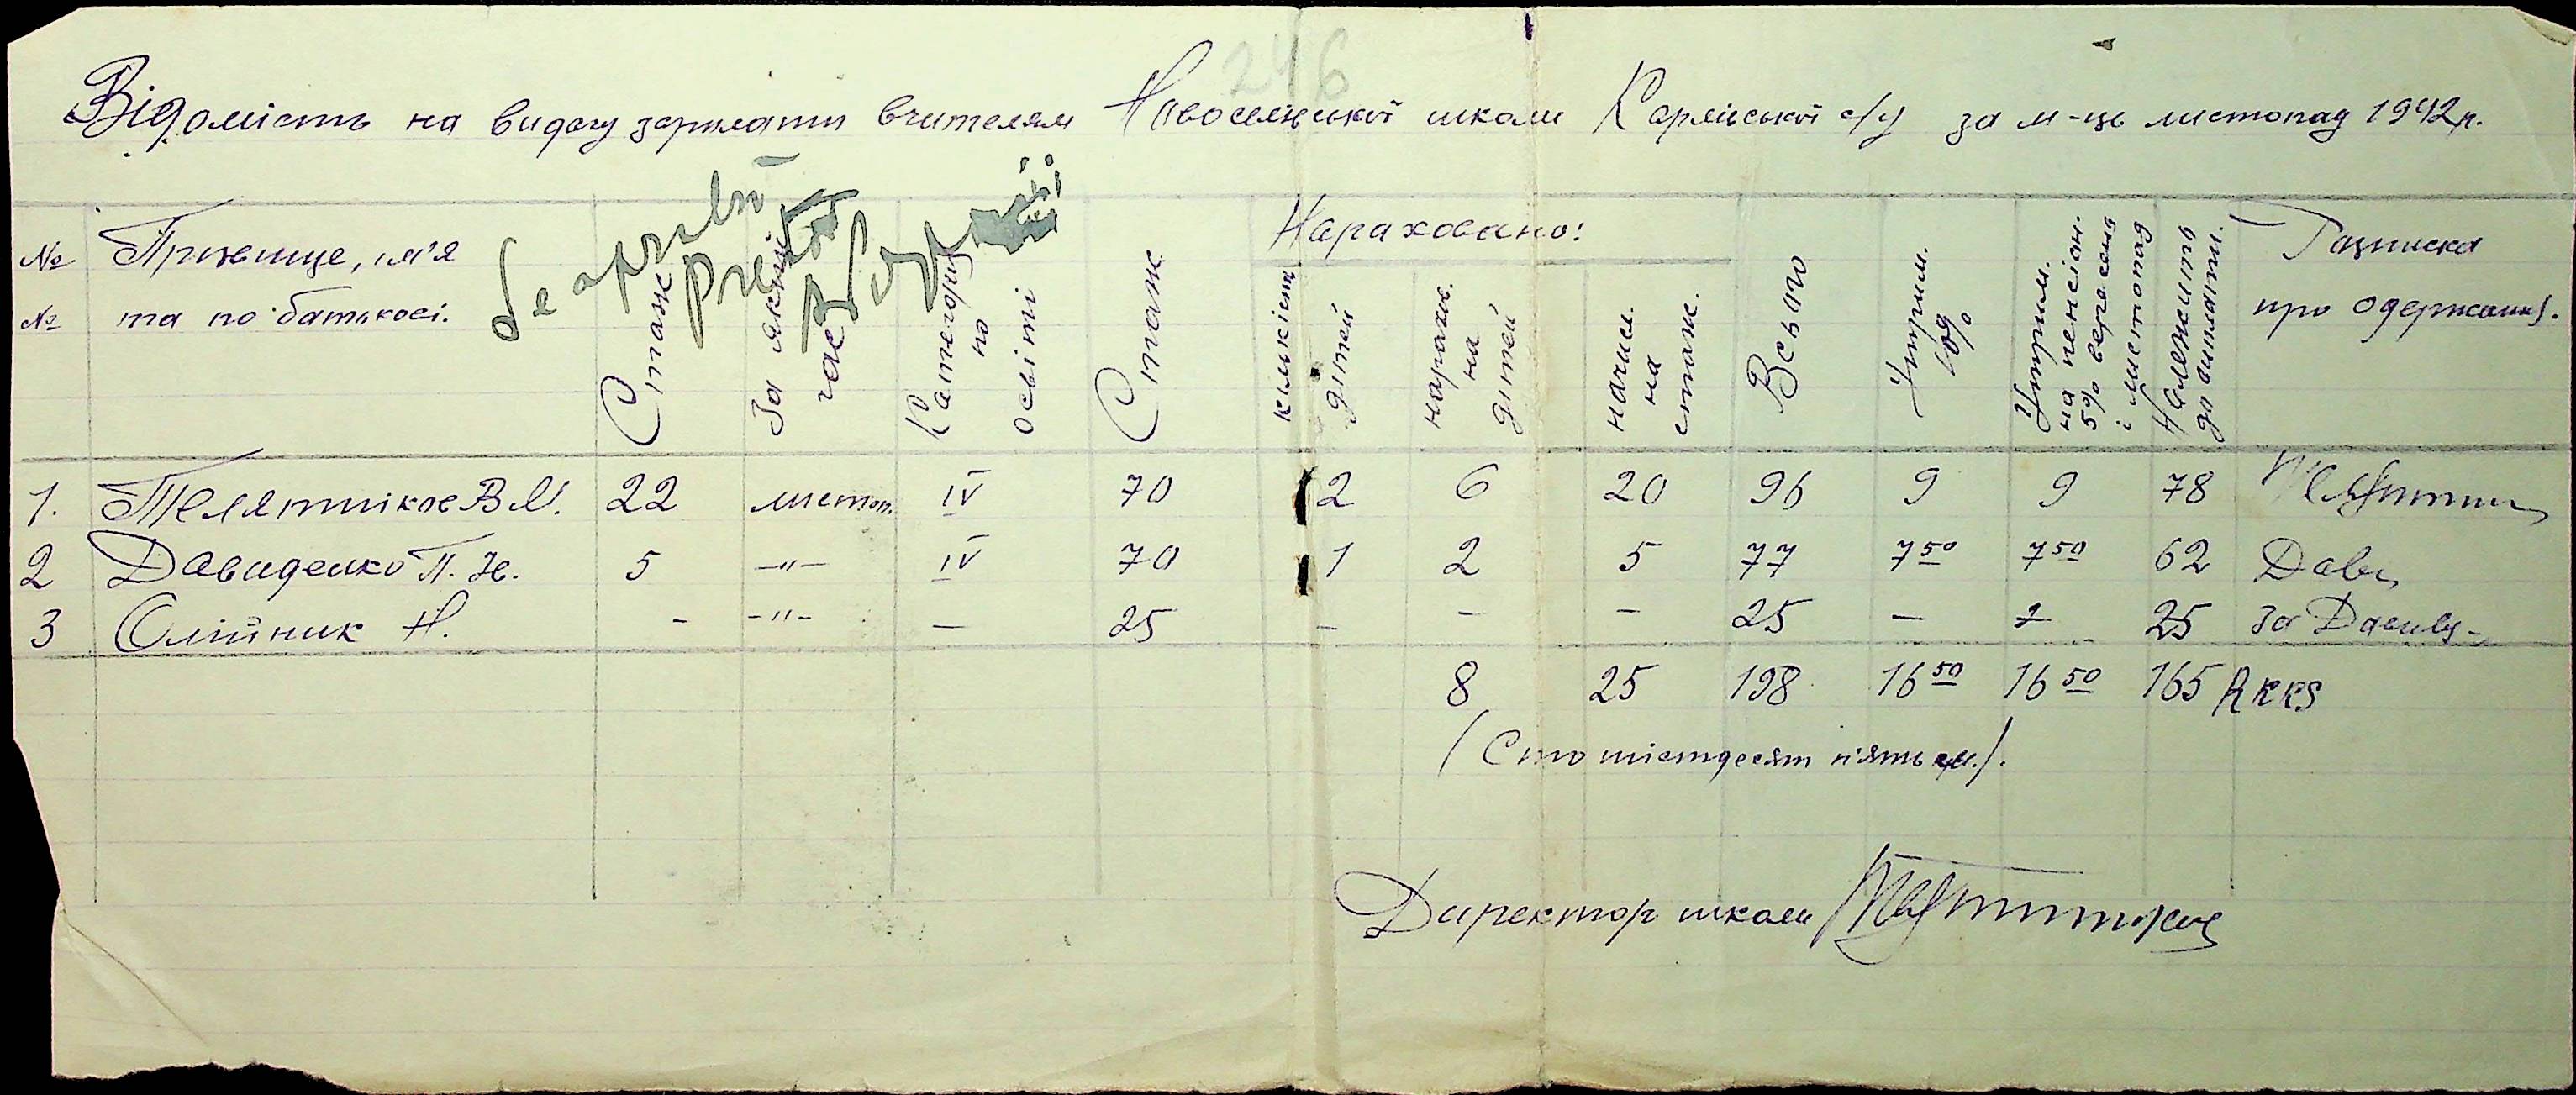 246
Відомість на видачу зарплати вчителям Новоселицької школи Карлівської с/у за м-ць листопад 1942 р.
Se aprobă
№ № Прізвище, ім'я та по батькові.
Стаж
За який час
Категорія по освіті
Стаж
Нараховано:
кількість дітей
нарахов. на дітей
начисл. на стаж.
Всього
Утрим. 10%
Утрим. на пенсіон. 5% вересень і листопад
Належить до виплати.
Розписка про одержання.
1. Телятніков В.М. 22 листоп. IV 70 2 6 20 96 9 9 78
2 Давиденко П. Н. 5 —"— IV 70 1 2 5 77 7 50 7 50 62 Дави
3 Олійник Н. - -"- — 25 — — — 25 — — 25 за Давид-
8 25 198 16 50 16 50 165 RKKS
(Сто шістдесят п'ять км.).
Директор школи